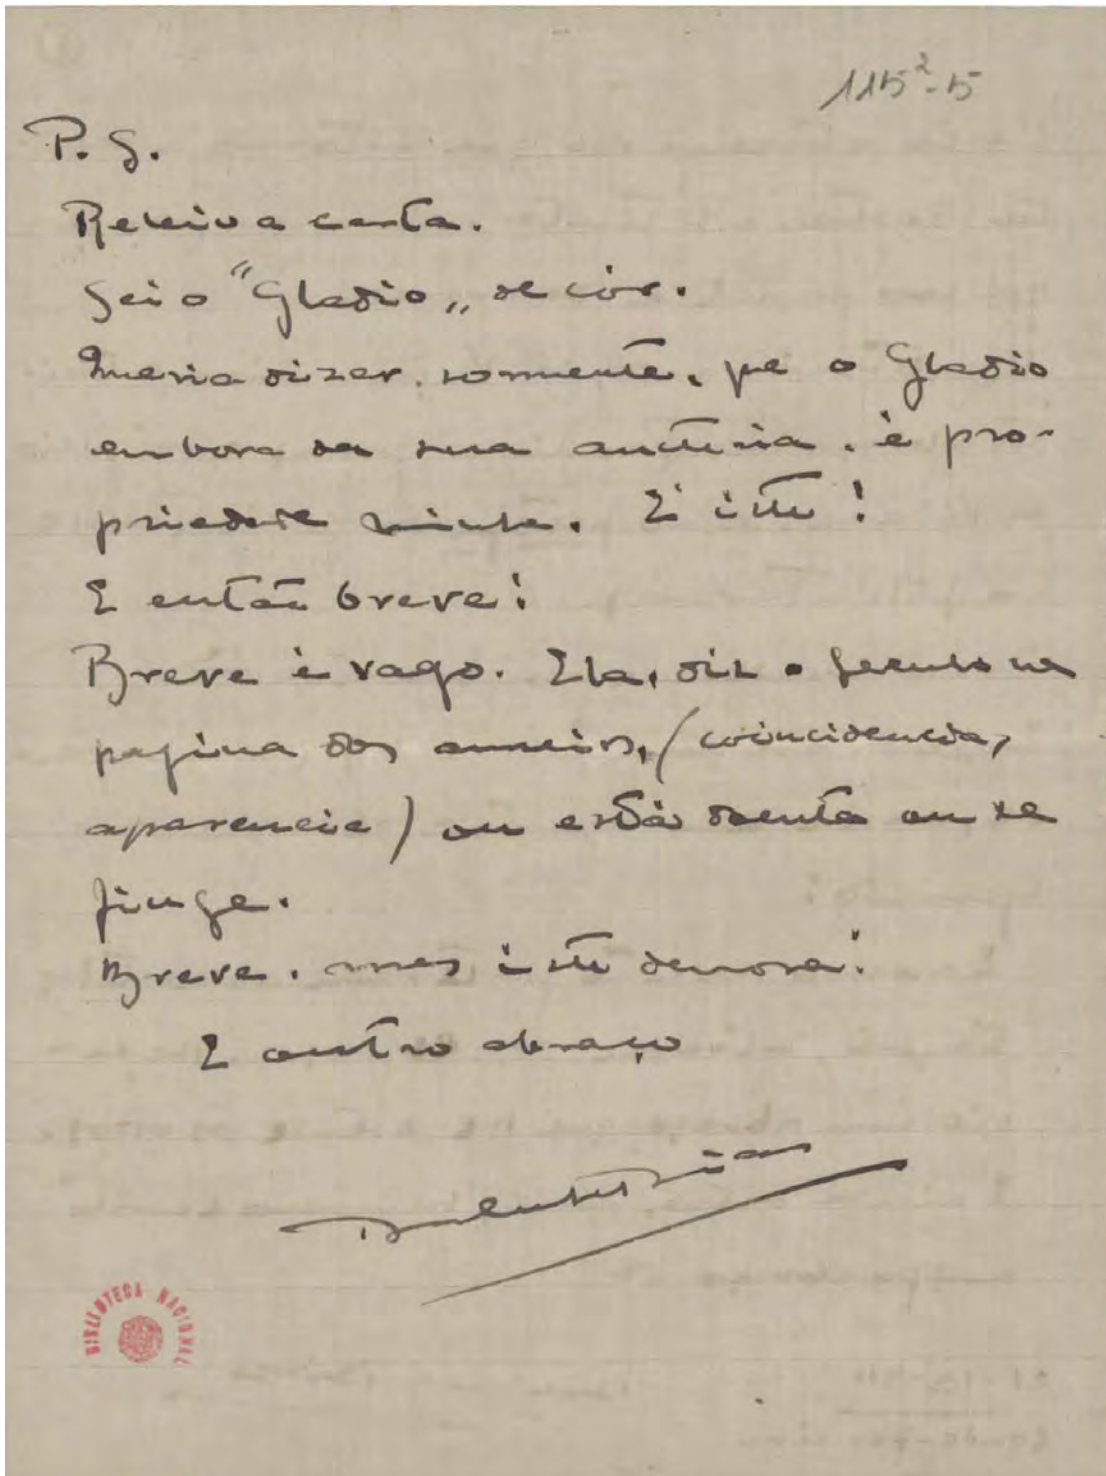 115²-5
P. S.
Recebi a carta.
Sei o "Gladio„ de cór.
Queria dizer, somente, que o Gladio
embora da sua auctoria, é pro-
priedade minha. É isto!
E então breve!
Breve é vago. Ela, diz o Seculo na
pagina dos anuncios, (coincidencia,
aparencia) ou está doente ou se
finge.
Breve, mas isto demora!
E outro abraço
BIBLIOTECA NACIONAL